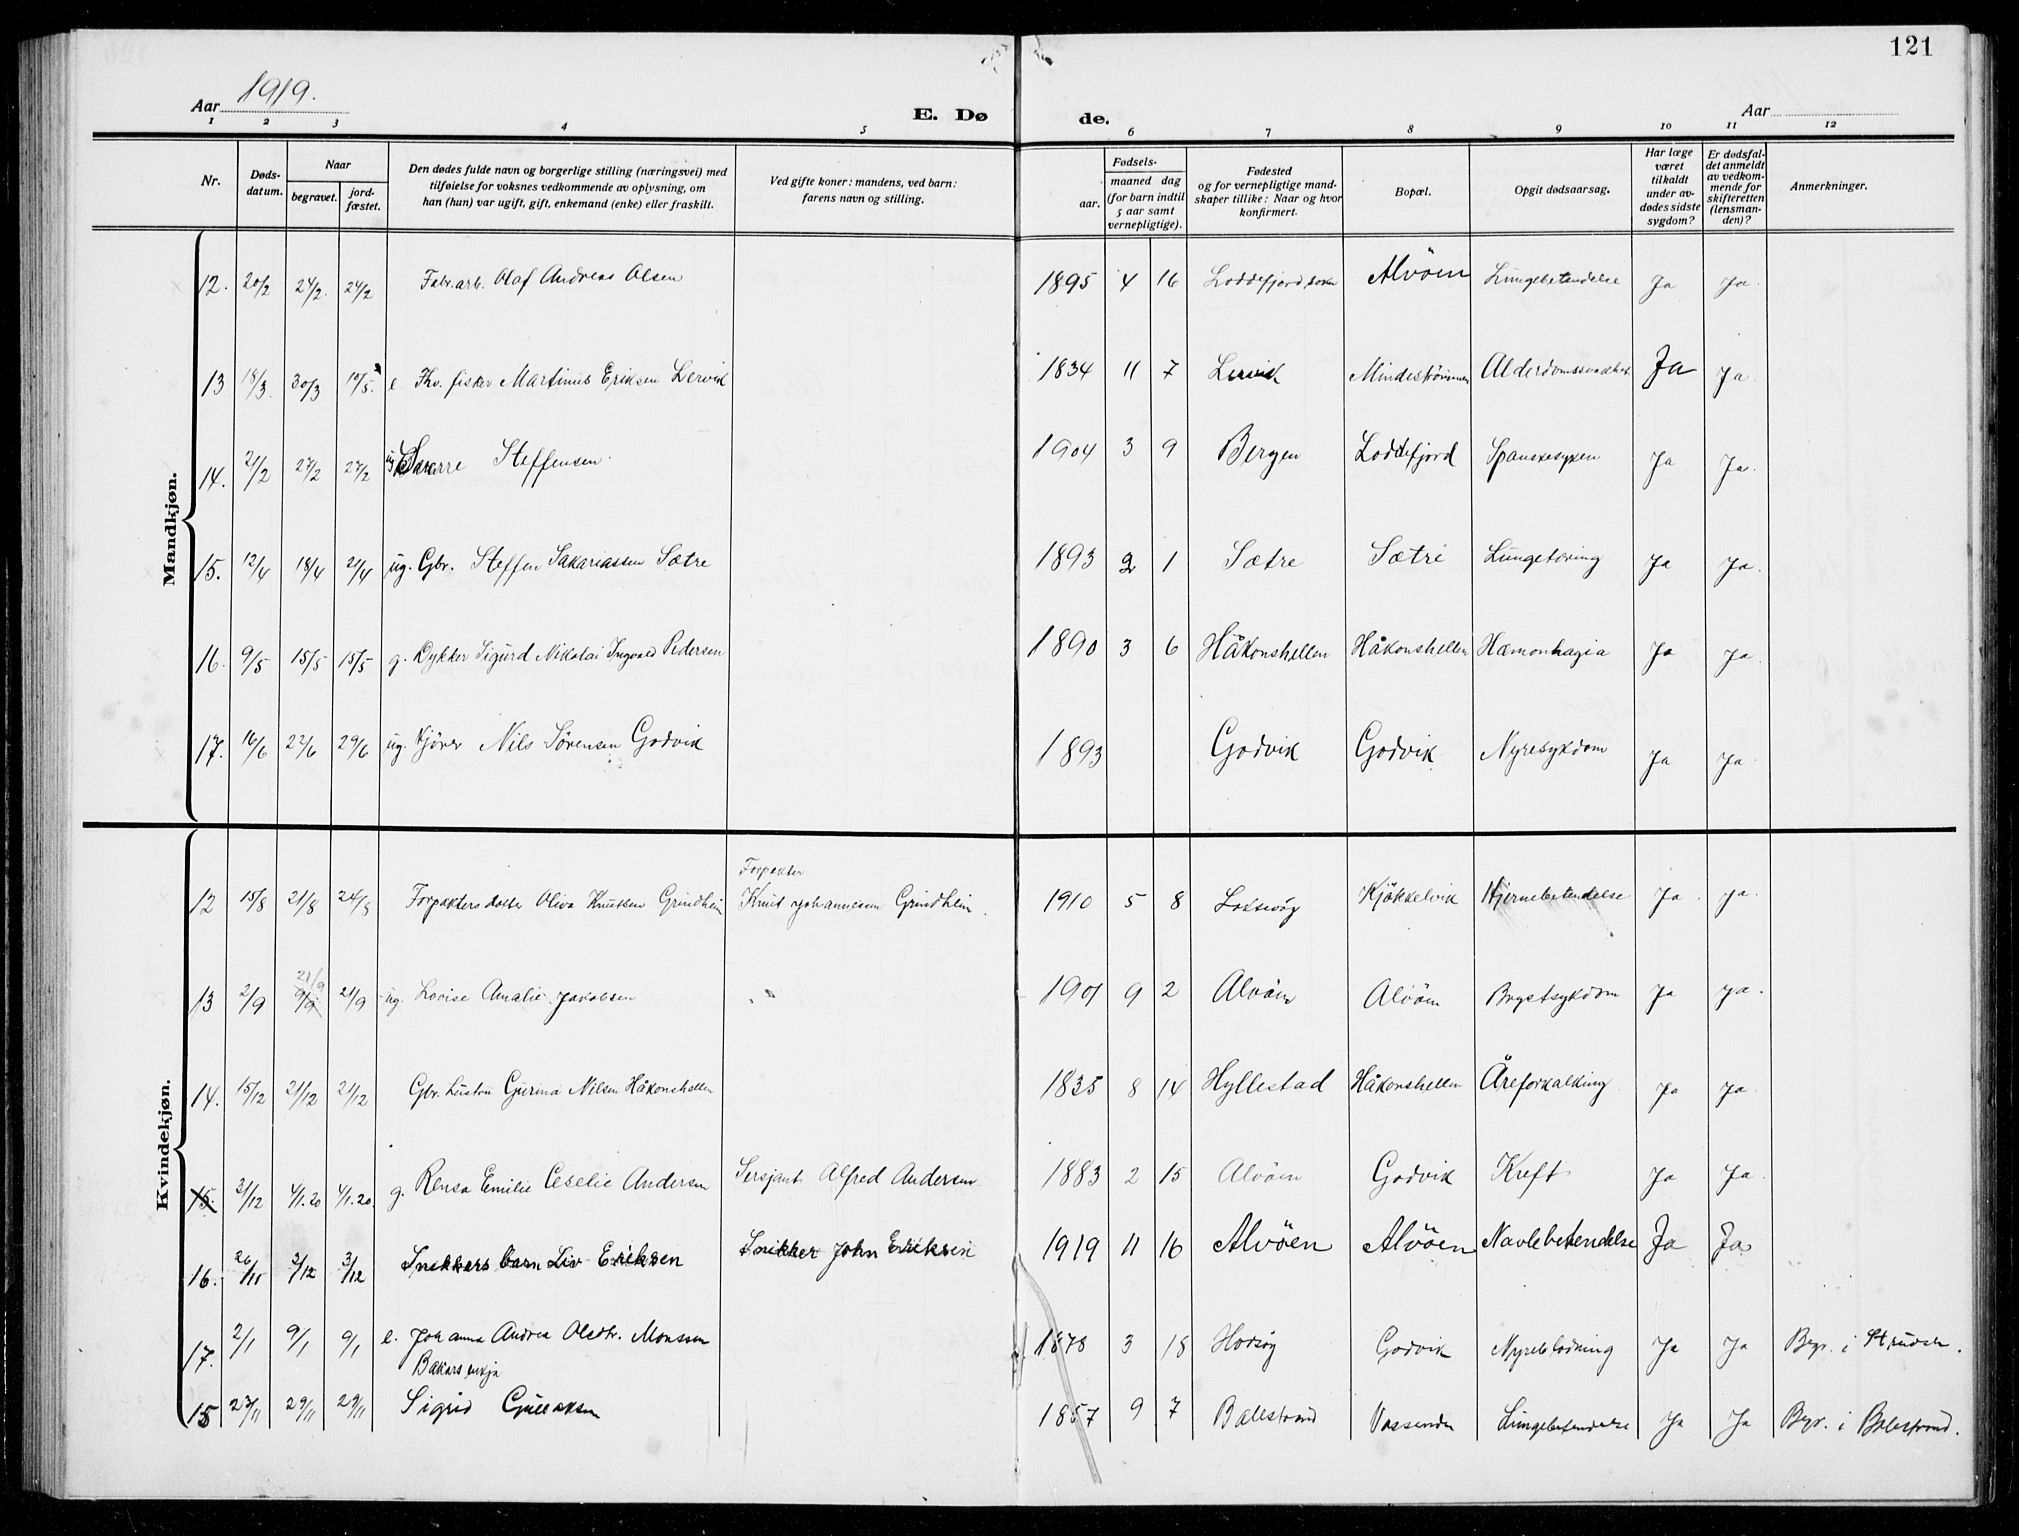 121
Aar 1919.
E. Døde.
Aar
1 2 3 4 5 6 7 8 9 10 11 12
Nr.
Dødsdatum.
Naar
begravet.
jordfæstet.
Den dødes fulde navn og borgerlige stilling (næringsvei) med
tilføielse for voksnes vedkommende av oplysning, om
han (hun) var ugift, gift, enkemand (enke) eller fraskilt.
Ved gifte koner: mandens, ved barn:
farens navn og stilling.
Fødsels-
aar.
maaned dag
(for barn indtil
5 aar samt
vernepligtige).
Fødested
og for vernepligtige mand-
skaper tillike: Naar og hvor
konfirmert.
Bopæl.
Opgit dødsaarsag.
Har læge
været
tilkaldt
under av-
dødes sidste
sygdom?
Er dødsfal-
det anmeldt
av vedkom-
mende for
skifteretten
(lensman-
den)?
Anmerkninger.
Mandkjøn.
12. 20/2 24/2. 24/2 Fabr.arb. Olaf Andreas Olsen 1895 4 16 Loddefjord Alvöen Lungebetendelse Ja Ja.
13 18/3. 30/3 10/5. e. Fhv. fisker Martinus Eriksen Lervik 1834 11 7 Lervik Mindeströmmen Alderdomssvakhet Ja Ja.
14. 21/2 27/2 27/2 Steffensen. 1904 3 9 Bergen Loddefjord Spanskesyken Ja Ja.
15. 12/4 18/4 21/4 ug. Gbr. Steffen Sakariassen Sætre 1893 2 1 Sætre Sætre Lungetæring Ja Ja.
16. 9/5 15/5 15/5 g. Dykker Sigurd Nikolai Ingvald Pedersen 1890 3 6 Håkonshellen Håkonshellen Hæmorrhagia Ja Ja.
17. 16/6 22/6 29/6 ug. Kjører Nils Sörensen Godvik 1893 Godvik Godvik Nyresykdom Ja Ja.
Kvindekjøn.
12 15/8 21/8 24/8 Forpakters datter Oliva Knutsen Grindheim Forpakter Knut Johannesen Grindheim. 1910 5 8 Laksevåg Kjökkelvik Hjernebetendelse Ja. Ja.
13 2/9 9/9 21/9 21/9 ug. Lovise Amalie Jakobsen 1901 9 2 Alvöen Alvöen Brystsykdom Ja Ja.
14. 15/12 21/12 21/12 Gbr. hustru Gjurina Nilsen Håkonshellen 1835 8 14 Hyllestad Håkonshellen Åreforkalkning Ja Ja.
15. 31/12 4/1.20 4/1.20. g. Rensa Emilie Ceselie Andersen Sersjant Alfred Andersen 1883 2 15 Alvöen Godvik Kreft Ja Ja.
16. 26/11 3/12 3/12 Snekkers barn Liv Eriksen Snikker John Eriksen 1919 11 16 Alvöen Alvöen Navlebetendelse Ja Ja
17. 2/1 9/1 9/1 e. Johanna Andrea Olsdtr. Monssen Bakers enkja 1878 3 18 Godvik Nyreblödning Ja Ja Begr. i
15 23/11 29/11 29/11 Sigrid Gulleksen 1857 9 7 Balestrand Vassenden Lungebetendelse Ja Ja Begr. i Balestrand.